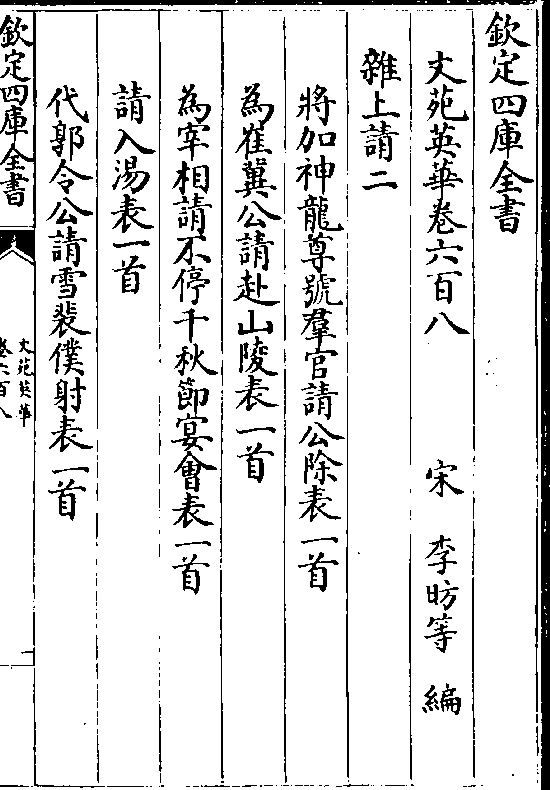 欽定四庫全書
文苑英華卷六百八　宋　李昉等　編
雜上請二
將加神龍尊號羣官請公除表一首
為崔冀公請赴山陵表一首
為宰相請不停千秋節宴會表一首
請入湯表一首
代郭令公請雪裴僕射表一首
欽定四庫全書
文苑英華
卷六百八
一